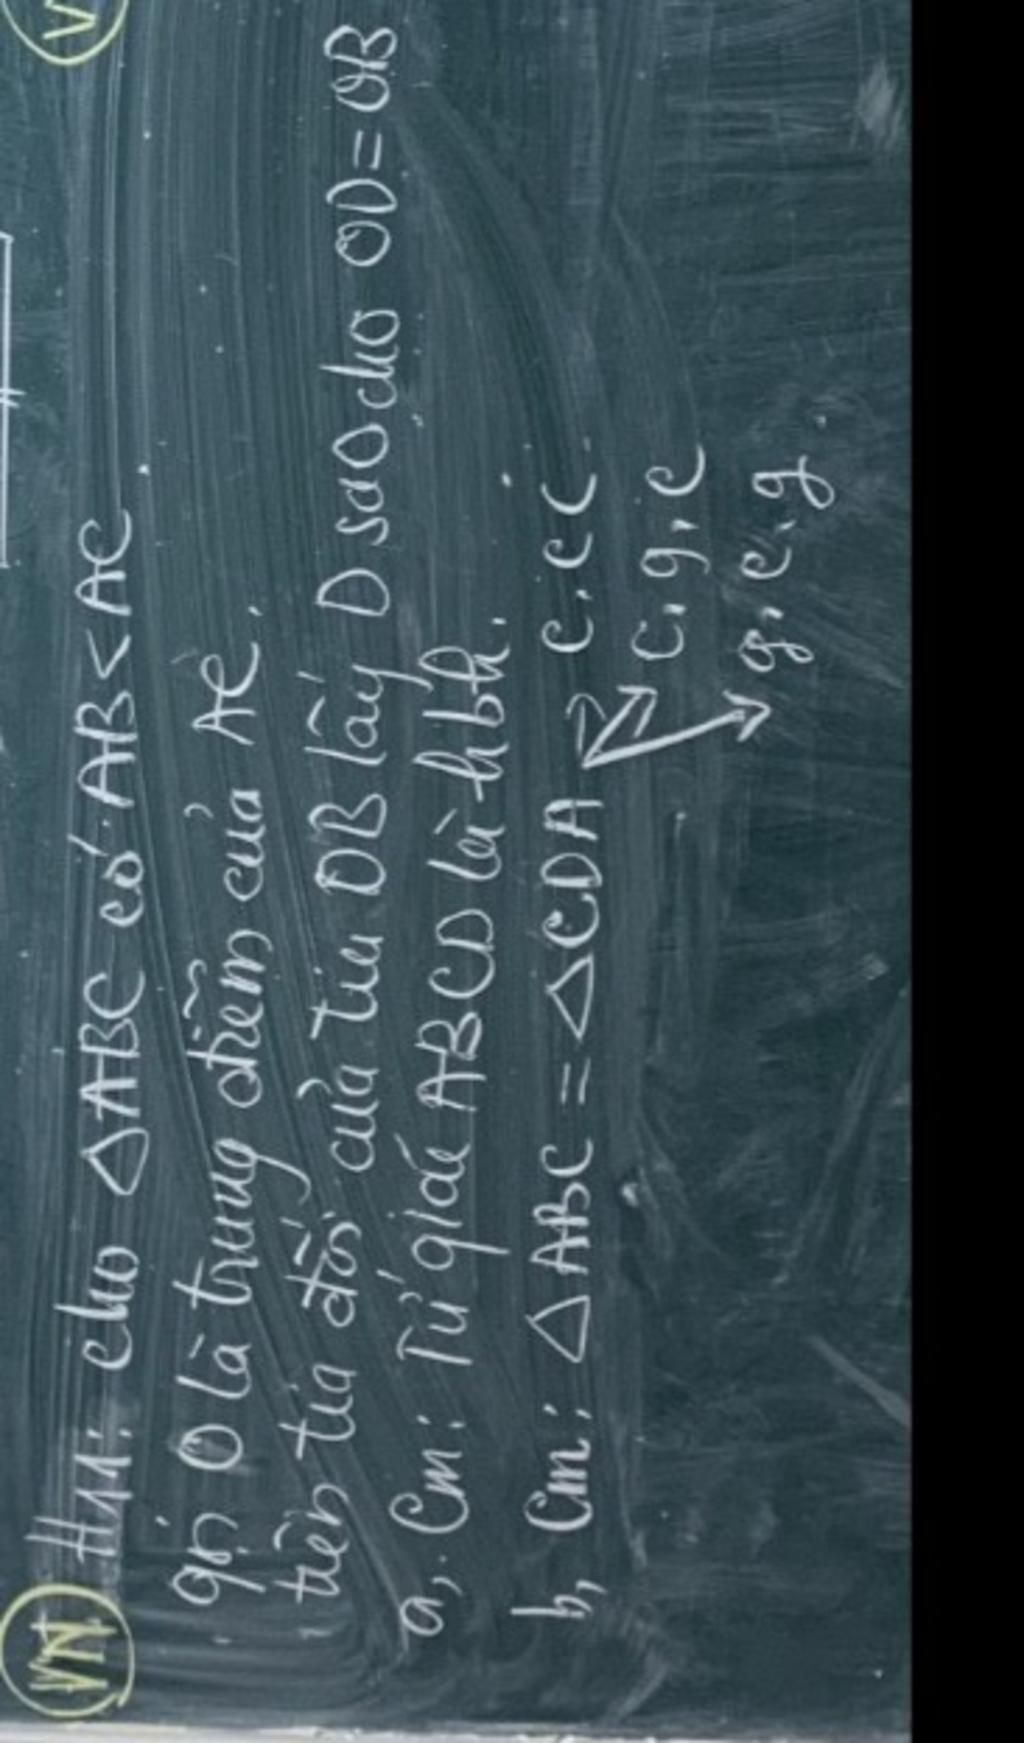 VN
H11: cho △ABC có AB < AC
gọi O là trung điểm của AC.
trên tia đối của tia OB lấy D sao cho OD = OB
a, Cm: Tứ giác ABCD là hbh.
b, Cm: △ABC = △CDA c.c.c
c.g.c
g.c.g.